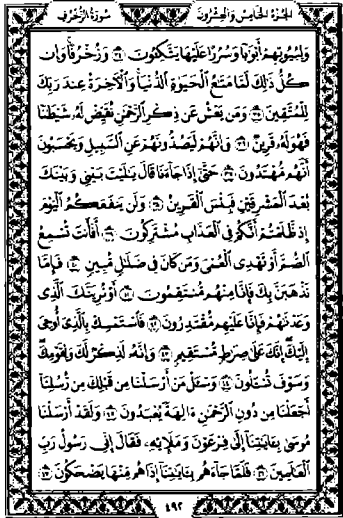 سُورَةُ الزُّخْرُفِ الجُزْءُ الخَامِسُ وَالعِشْرُونَ
وَلِبُيُوتِهِمْ أَبْوَابًا وَسُرُرًا عَلَيْهَا يَتَّكِـُٔونَ ٣٤ وَزُخْرُفًا وَإِن
كُلُّ ذَٰلِكَ لَمَّا مَتَٰعُ الْحَيَوٰةِ الدُّنْيَا وَالْآخِرَةُ عِندَ رَبِّكَ
لِلْمُتَّقِينَ ٣٥ وَمَن يَعْشُ عَن ذِكْرِ الرَّحْمَٰنِ نُقَيِّضْ لَهُ شَيْطَٰنًا
فَهُوَ لَهُ قَرِينٌ ٣٦ وَإِنَّهُمْ لَيَصُدُّونَهُمْ عَنِ السَّبِيلِ وَيَحْسَبُونَ
أَنَّهُم مُّهْتَدُونَ ٣٧ حَتَّىٰ إِذَا جَآءَنَا قَالَ يَٰلَيْتَ بَيْنِي وَبَيْنَكَ
بُعْدَ الْمَشْرِقَيْنِ فَبِئْسَ الْقَرِينُ ٣٨ وَلَن يَنفَعَكُمُ الْيَوْمَ
إِذ ظَّلَمْتُمْ أَنَّكُمْ فِي الْعَذَابِ مُشْتَرِكُونَ ٣٩ أَفَأَنتَ تُسْمِعُ
الصُّمَّ أَوْ تَهْدِي الْعُمْيَ وَمَن كَانَ فِي ضَلَٰلٍ مُّبِينٍ ٤٠ فَإِمَّا
نَذْهَبَنَّ بِكَ فَإِنَّا مِنْهُم مُّنتَقِمُونَ ٤١ أَوْ نُرِيَنَّكَ الَّذِي
وَعَدْنَٰهُمْ فَإِنَّا عَلَيْهِم مُّقْتَدِرُونَ ٤٢ فَاسْتَمْسِكْ بِالَّذِي أُوحِيَ
إِلَيْكَ إِنَّكَ عَلَىٰ صِرَٰطٍ مُّسْتَقِيمٍ ٤٣ وَإِنَّهُ لَذِكْرٌ لَّكَ وَلِقَوْمِكَ
وَسَوْفَ تُسْـَٔلُونَ ٤٤ وَسْـَٔلْ مَنْ أَرْسَلْنَا مِن قَبْلِكَ مِن رُّسُلِنَا
أَجَعَلْنَا مِن دُونِ الرَّحْمَٰنِ ءَالِهَةً يُعْبَدُونَ ٤٥ وَلَقَدْ أَرْسَلْنَا
مُوسَىٰ بِـَٔايَٰتِنَا إِلَىٰ فِرْعَوْنَ وَمَلَإِيْهِ فَقَالَ إِنِّي رَسُولُ رَبِّ
الْعَٰلَمِينَ ٤٦ فَلَمَّا جَآءَهُم بِـَٔايَٰتِنَا إِذَا هُم مِّنْهَا يَضْحَكُونَ ٤٧
٤٩٢